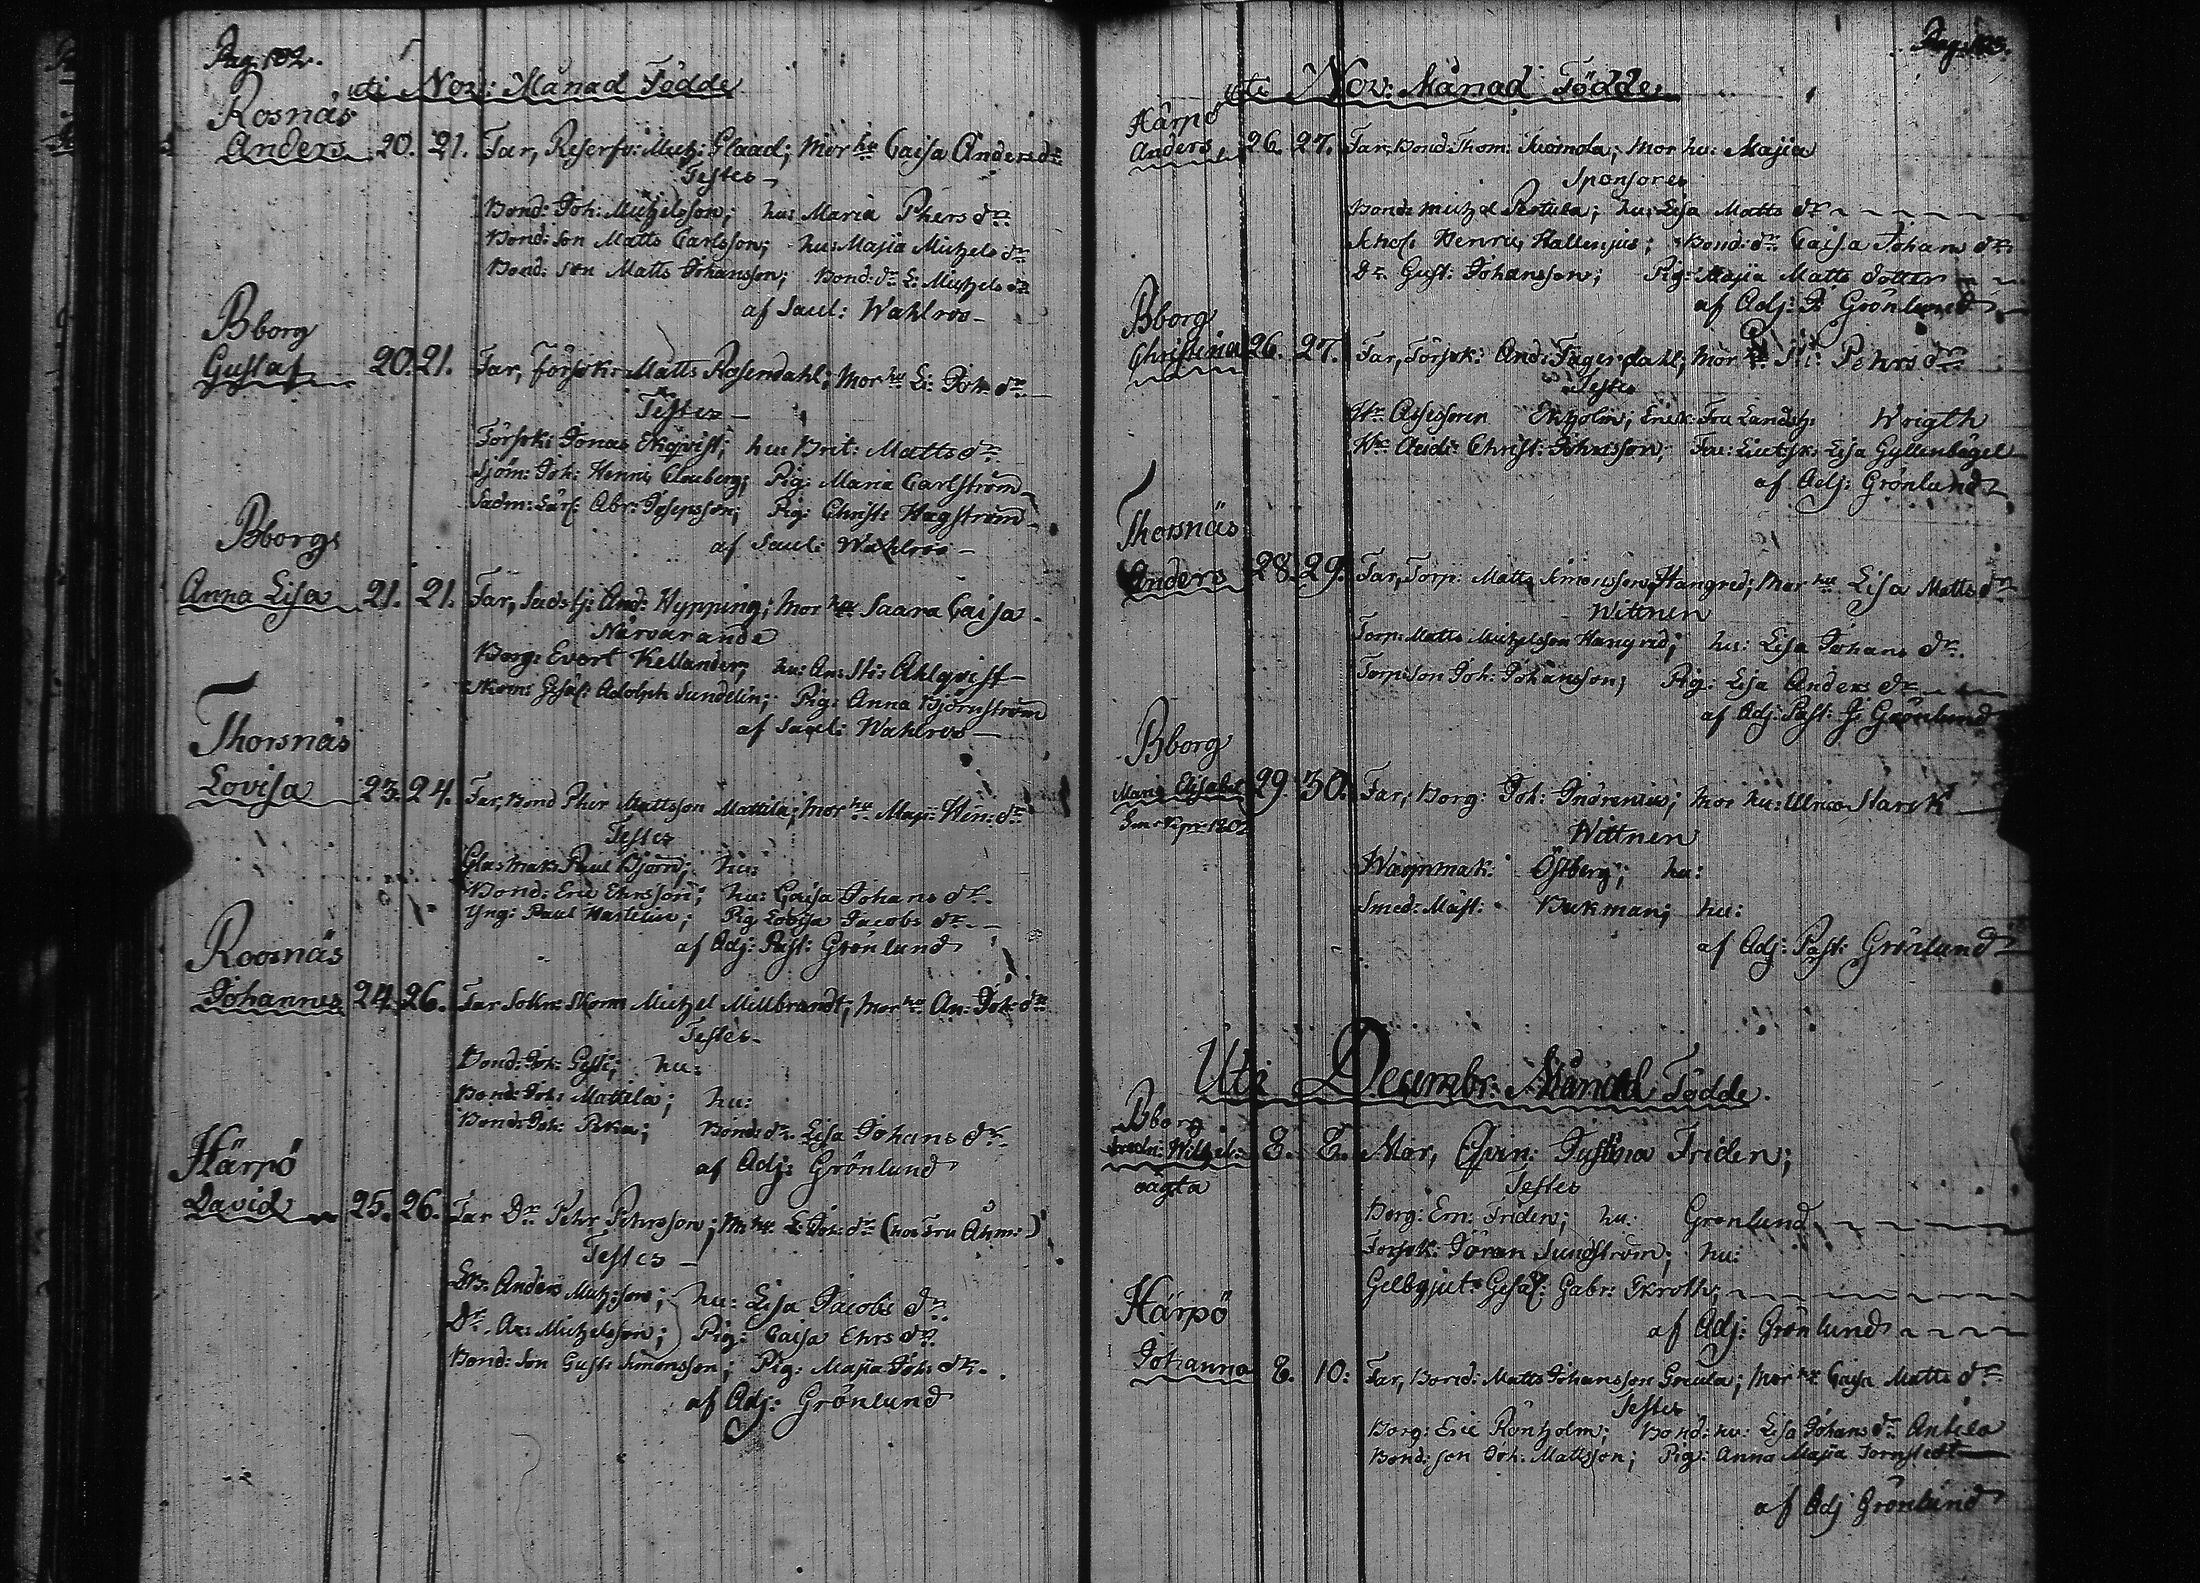 Pag: 102.
uti Nov: Månad Födde
Rosnäs
Anders 20. 21. Far, Reserfv: Mich: Glaad; Mor hu Caisa Anders dr
Testes
Bond: Joh: Michelsson; hu: Maria Phers dr
Bond: Son Matts Carlsson; hu: Majia Michels dr
Bond: Son Matts Johansson; Bond: dr L: Michels dr
af Sacel: Wahlroos
Bborg
Gustaf 20. 21. Far, Försök: Matts Rosendahl; Mor hu Li: Joh: dr
Testes
Försök: Jonas Ekqvist; hu: Brit: Matts dr
Sjöm: Joh: Henric Clouberg; Pig: Maria Carlström
Sadm: Lärl: Abr: Josepsson; Pig: Christ: Hagström
af Sacel: Wahlroos
Bborgs
Anna Lisa 21. 21. Far, And: Hypping; Mor hu Saara Caisa
Närvarande
Borg: Evert Kellander; hu: An: Sti: Ahlqvist
Skom: Gesäl: Adolph Sundelin; Pig: Anna Björnström
af Sacel: Wahlroos
Thorsnäs
Lovisa 23. 24. Far, Bond Pher Mattsson Mattila; Mor hu Maji: Hen: dr
Testes
Glasmak: Paul Björn; hu:
Bond: Eric Ehrsson; hu: Caisa Johans dr
Yng: Paul Hartelin; Pig Lovisa Jacobs dr
af Adj: Past: Grönlund
Roosnäs
Johannes 24. 26. Far Sokn: Skom Michel Millbrandt; Mor hu An: Joh: dr
Testes
Bond: Joh: hu:
Bond: Joh: Mattila; hu:
Bond: Joh: Peka; Bond: dr Lisa Johans dr
af Adj: Grönlund
Härpö
David 25. 26. Far Dr Pehr Pehrsson; M: hu L: Joh: dr (hos Fru Åhm:)
Testes
Dr: Anders Mich:son; hu: Lisa Jacobs dr
Dr. An: Michelsson; Pig: Caisa Ehrs dr
Bond: Son Gust: Simonsson; Pig: Majia Joh: dr
af Adj: Grönlund
Pag: 103.
uti Nov: Månad Födde
Härpö
Anders 26. 27. Far, Bond Thom: Mor hu: Majia
Sponsores
Bond: Michel hu: Lisa Matts dr
Schol: Henric Hallenius; Bond: dr Caisa Johans dr
Dr Gust: Johansson; Pig: Majia Matts dotter
af Adj: P: Grönlund
Bborg
Christina 26. 27. Far, Försök: And: Fagerdahl; Mor hu Sti: Pehrs dr
Testes
Hr Assessoren Ekholm; Enck: Fru Landsh: Wrigth
Hr Audi: Christ: Johnsson; Fru: Lieutsk: Lisa Gyllenbögel
af Adj: Grönlund
Thorsnäs
Anders 28. 29. Far, Torp: Matts Simonsson Hangred; Mor hu Lisa Matts dr
Wittnen
Torp: Matts Michelsson Hangred; hu: Lisa Johans dr
Torp: Son Joh: Johansson; Pig: Lisa Anders dr
af Adj: Past: P: Grönlund
Bborg
Maria Elisabet 29. 30. Far, Borg: Joh: Indrenius; Mor hu: Ulrica Starck
Wittnen
Wagnmak: Östberg; hu:
Smed: Mäst: Bukman; hu:
af Adj: Past: Grönlund
Uti Decembr: Månad Födde.
Bborg
Fredr: Wilhel: 8. 8. Mor, Qvin: Justina Friden;
oägta Testes
Borg: Ern: Friden; hu: Grönlund
Försök: Jöran Sundström; hu:
Gelbgjut: Gesäl: Gabr: Skroth;
af Adj: Grönlund
Härpö
Johanna 8. 10: Far, Bond: Matts Johansson Mor hu Caisa Matts dr
Testes
Borg: Eric Rönholm; Bond: hu: Lisa Johans dr Antila
Bond: Son Joh: Mattsson; Pig: Anna Majia Tornstedt
af Adj Grönlund